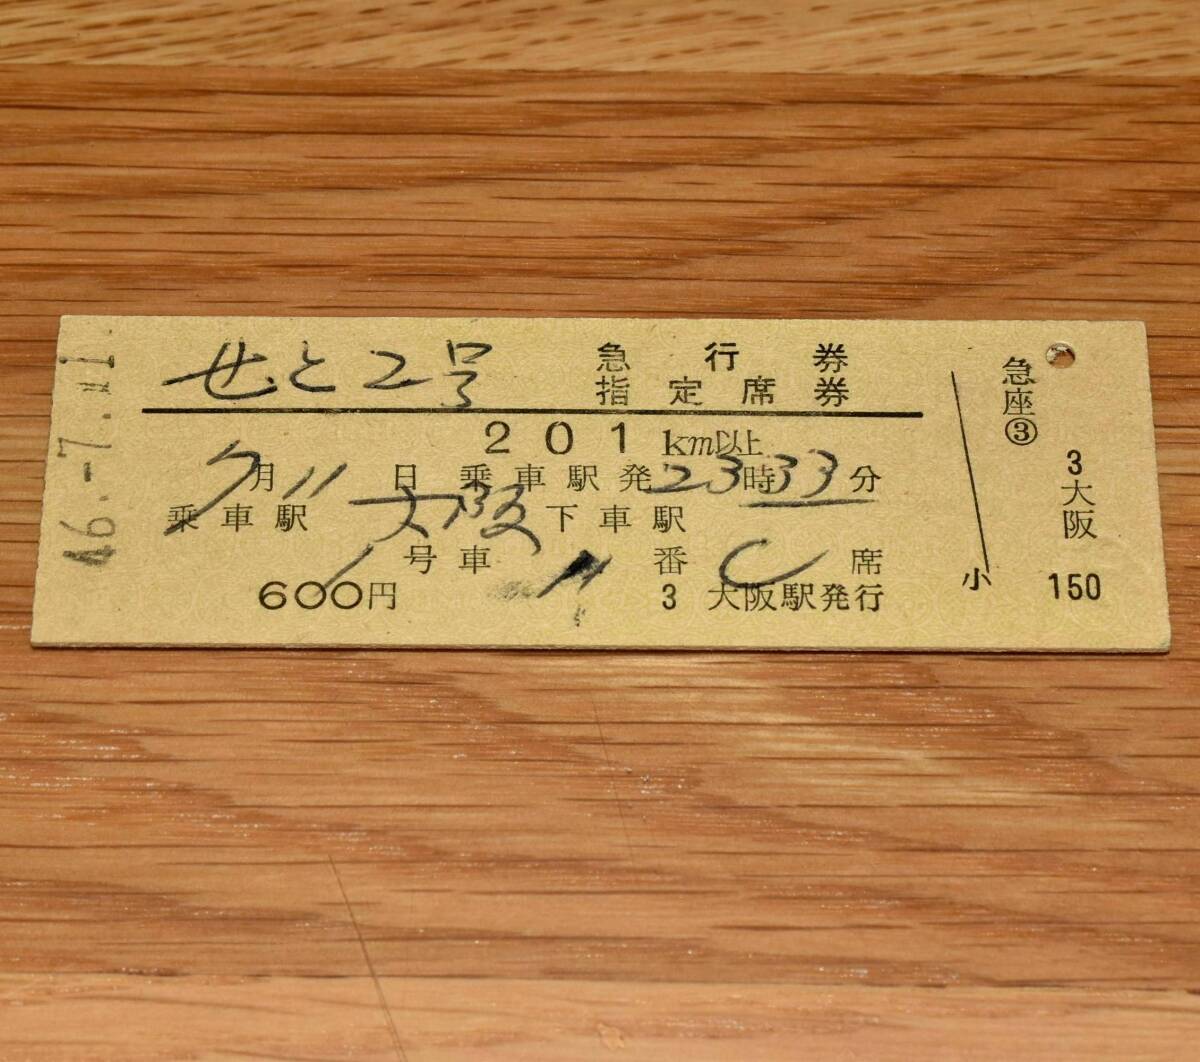 46.-7.11.
せと2号 急行券
指定席券
201km以上
7月11日 乗車駅発23時33分
乗車駅 大阪 下車駅
1号車 番C席
600円 3 大阪駅発行
急座③
3大阪
小 150